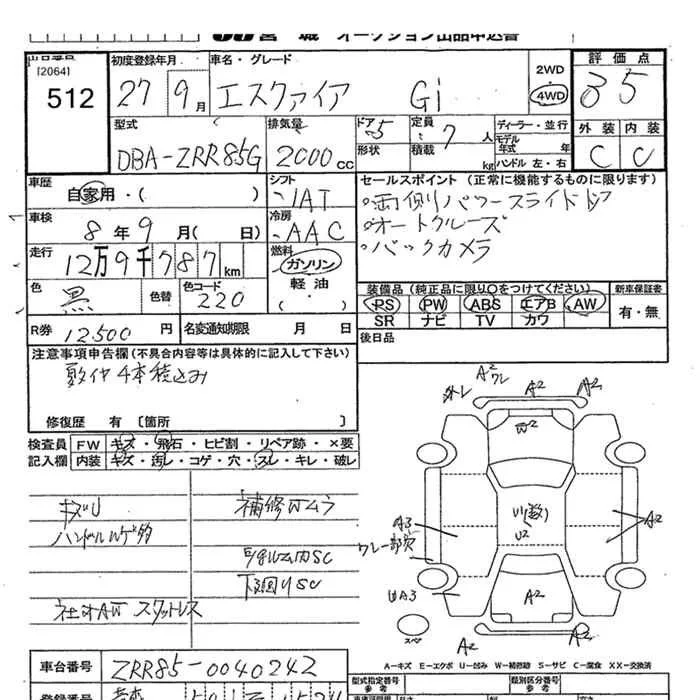 宮城 オークション出品申込書
出品番号
(2064)
512
初度登録年月
27年9月
車名・グレード
エスクァイア Gi
2WD
4WD
評価点
35
外装 内装
C C
型式
DBA-ZRR85G
排気量
2000CC
ドア 5
形状
定員 7人
積載 kg
ディーラー・並行
モデル年式 年
ハンドル 左・右
車歴
自家用・( )
シフト
IAT
セールスポイント (正常に機能するものに限ります)
・両側パワースライドドア
・オートクルーズ
・バックカメラ
車検
8年9月( 日)
冷房
AAC
走行
12万9千787km
燃料
ガソリン
軽油
・( )
色
黒
色替
色コード
220
装備品 (純正品に限り〇をつけてください)
PS PW ABS エアB AW
SR ナビ TV カワ
新車保証書
有・無
R券
12500円
名変通知期限 月 日
後日品
注意事項申告欄 (不具合内容等は具体的に記入して下さい)
4本積込み
修復歴 有 〔箇所 〕
検査員 FW キズ・飛石・ヒビ割・リペア跡・×要
記入欄 内装 キズ・汚レ・コゲ・穴・スレ・キレ・破レ
キズU
補修Wムラ
SC
下廻りSC
社オAW スタットレス
外レ
A2 ワレ
A2
A2
W2
A3
ワレ一部欠
U2
A2
UA3
A2
A2
A2
スペア
A-キズ E-エクボ U-凹み W-補修跡 S-サビ C-腐食 XX-交換済
車台番号
ZRR85-0040242
型式指定番号
参考
類別区分番号
参考
登録番号